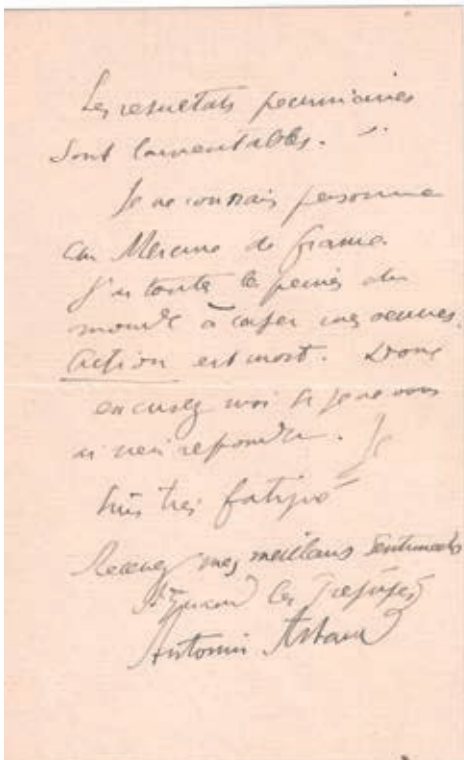 Les resultats pecuniaires
sont lamentables.
Je ne connais personne
au Mercure de France
J'ai toutes les peines du
monde à caser mes œuvres.
Action est mort. Donc
excusez moi si je ne vous
ai rien repondu. Je
suis très fatigué
Recevez mes meilleurs sentiments
Antonin Artaud